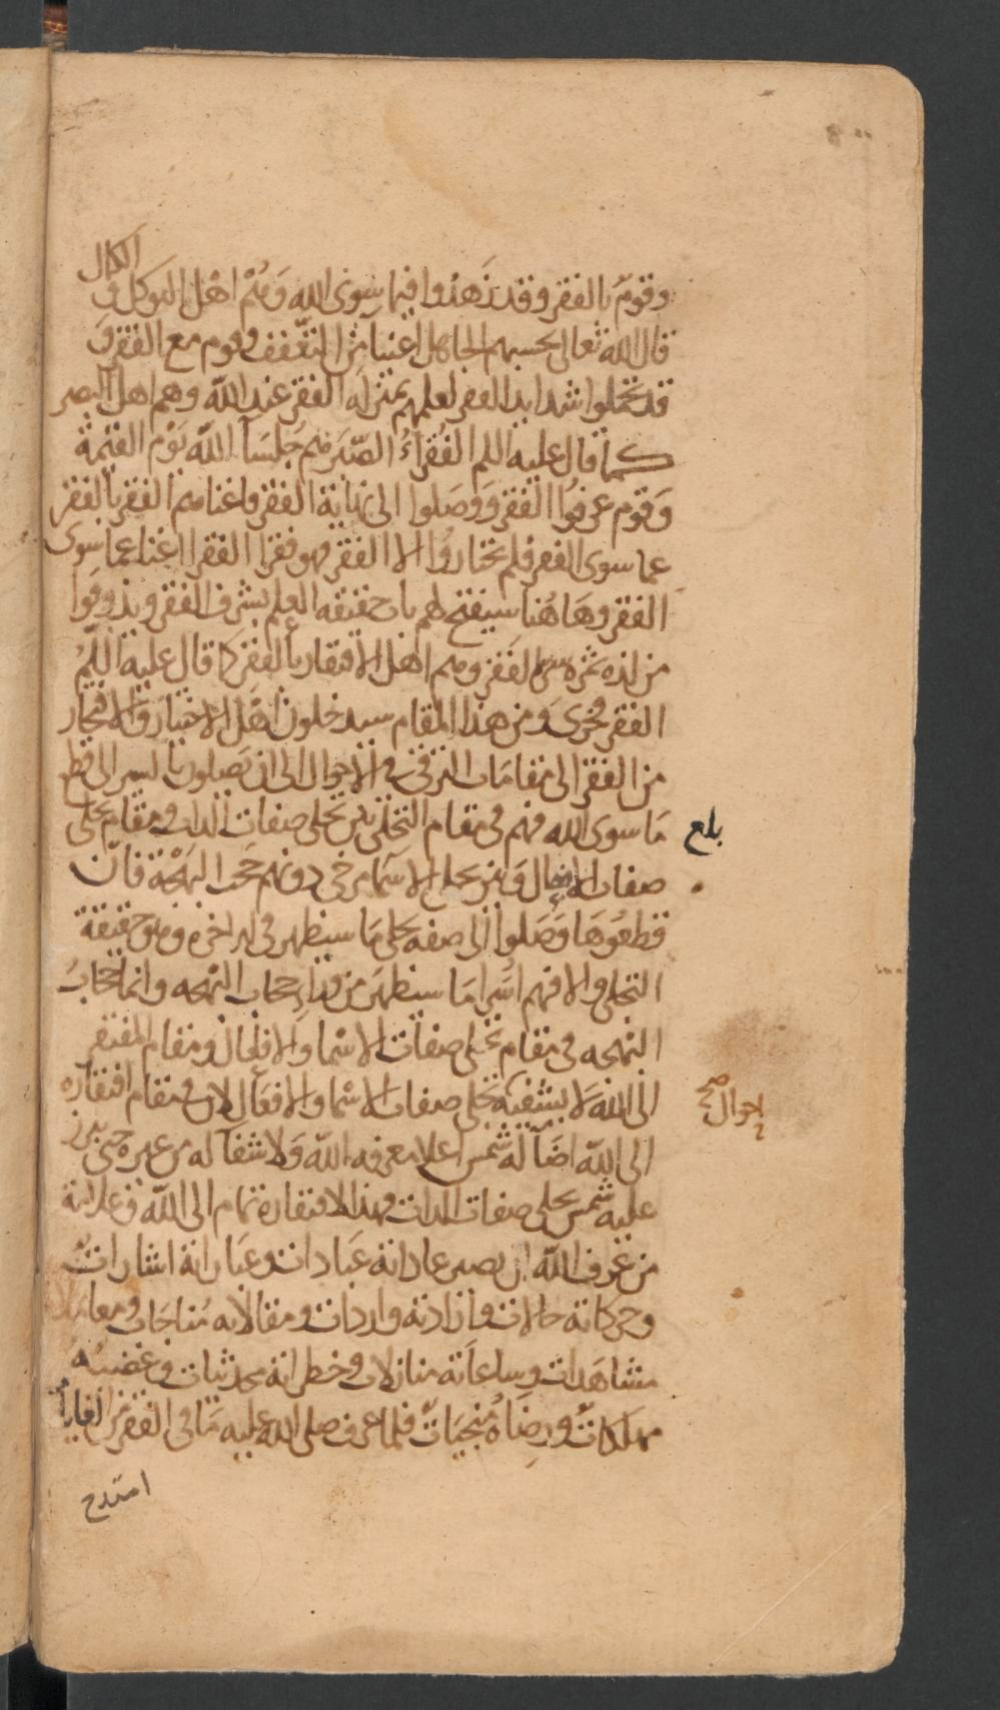 الكمال
وقومٌ بالفقر وقد زَهَدُوا فيما سِوَى الله وَهُمْ اهْل التوكل وَ
قال الله تعالى يحسبهم الجاهل اغنيا من التعفف وقوم مع الفقر وَ
قد تحملوا شدايد الفقر لعلمهم بمنزلة الفقر عند الله وهم اهل الصبر
كما قال عليه اللم الفُقَرآءُ الصُّبَر هم جُلَسَآ الله يَوْم القيمة
وَقوم عرفوا الفقر وَوصَلوا الى نهاية الفقر فاغناهم الفقر بالفقر
عما سوى الفقر فلم يختاروا الا الفقر فهو فقرا الفقرا اغنيا عما سوى
الفقر وهَاهُنا سيفتح لهم باب حقيقه العلم بشرف الفقر ويذوقوا
من لذه ثمرة الفقر وهم اهل الافتقار بالفقر كما قال عليه اللمُ
الفقر فخرى وَمن هذا المقام سيدخلون اهل الاختيار والافتخار
من الفقر الى مقامات الترقى في الاحوال الى ان يَصِلون بالسر الى قطع
مَا سوى الله فهم فى مقام التخلى بين تجلى صفات الذات ومقام تجلى
بلغ
صفات الافعال وَبين تجلى الاسما مرخى دونهم حجب البَهْجَة فان
قطعُوهَا وَصَلوا الى صفه تجلى مَا سيظهر فى الاخرى وهى حقيقة
التجلى والا فهم اسرا مَا سيظهر من ورآء حجاب البهجه وانما حجابُ
البهجه فى مقام تجلى صفات الاسما والافعال ومقام المفتقر
الى الله لا يشفيه تجلى صفات الاسما والافعال لان فى مقام افتقاره
احوال صح
الى الله اضآ له شمس اعلا معرفه الله وَلا شفآ له من غيره حتى تبرز
عليه شمس تجلى صفات الذات فهذا الافتقار تمام الى الله وعلامة
من عَرف الله ان يصير عاداته عَبادات وعبَاراته اشارات
وحركاته حالات وارادته واردات ومقالاته مُناجَات ومعاملا
مشاهَدات وساعَاته منازلات وخطراته محدثات وغضبُه
مهلكاتٌ ورضَاهُ مُنجيَاتٌ فلما عرف صلى الله عليه مَا فى الفقر من
امتدح